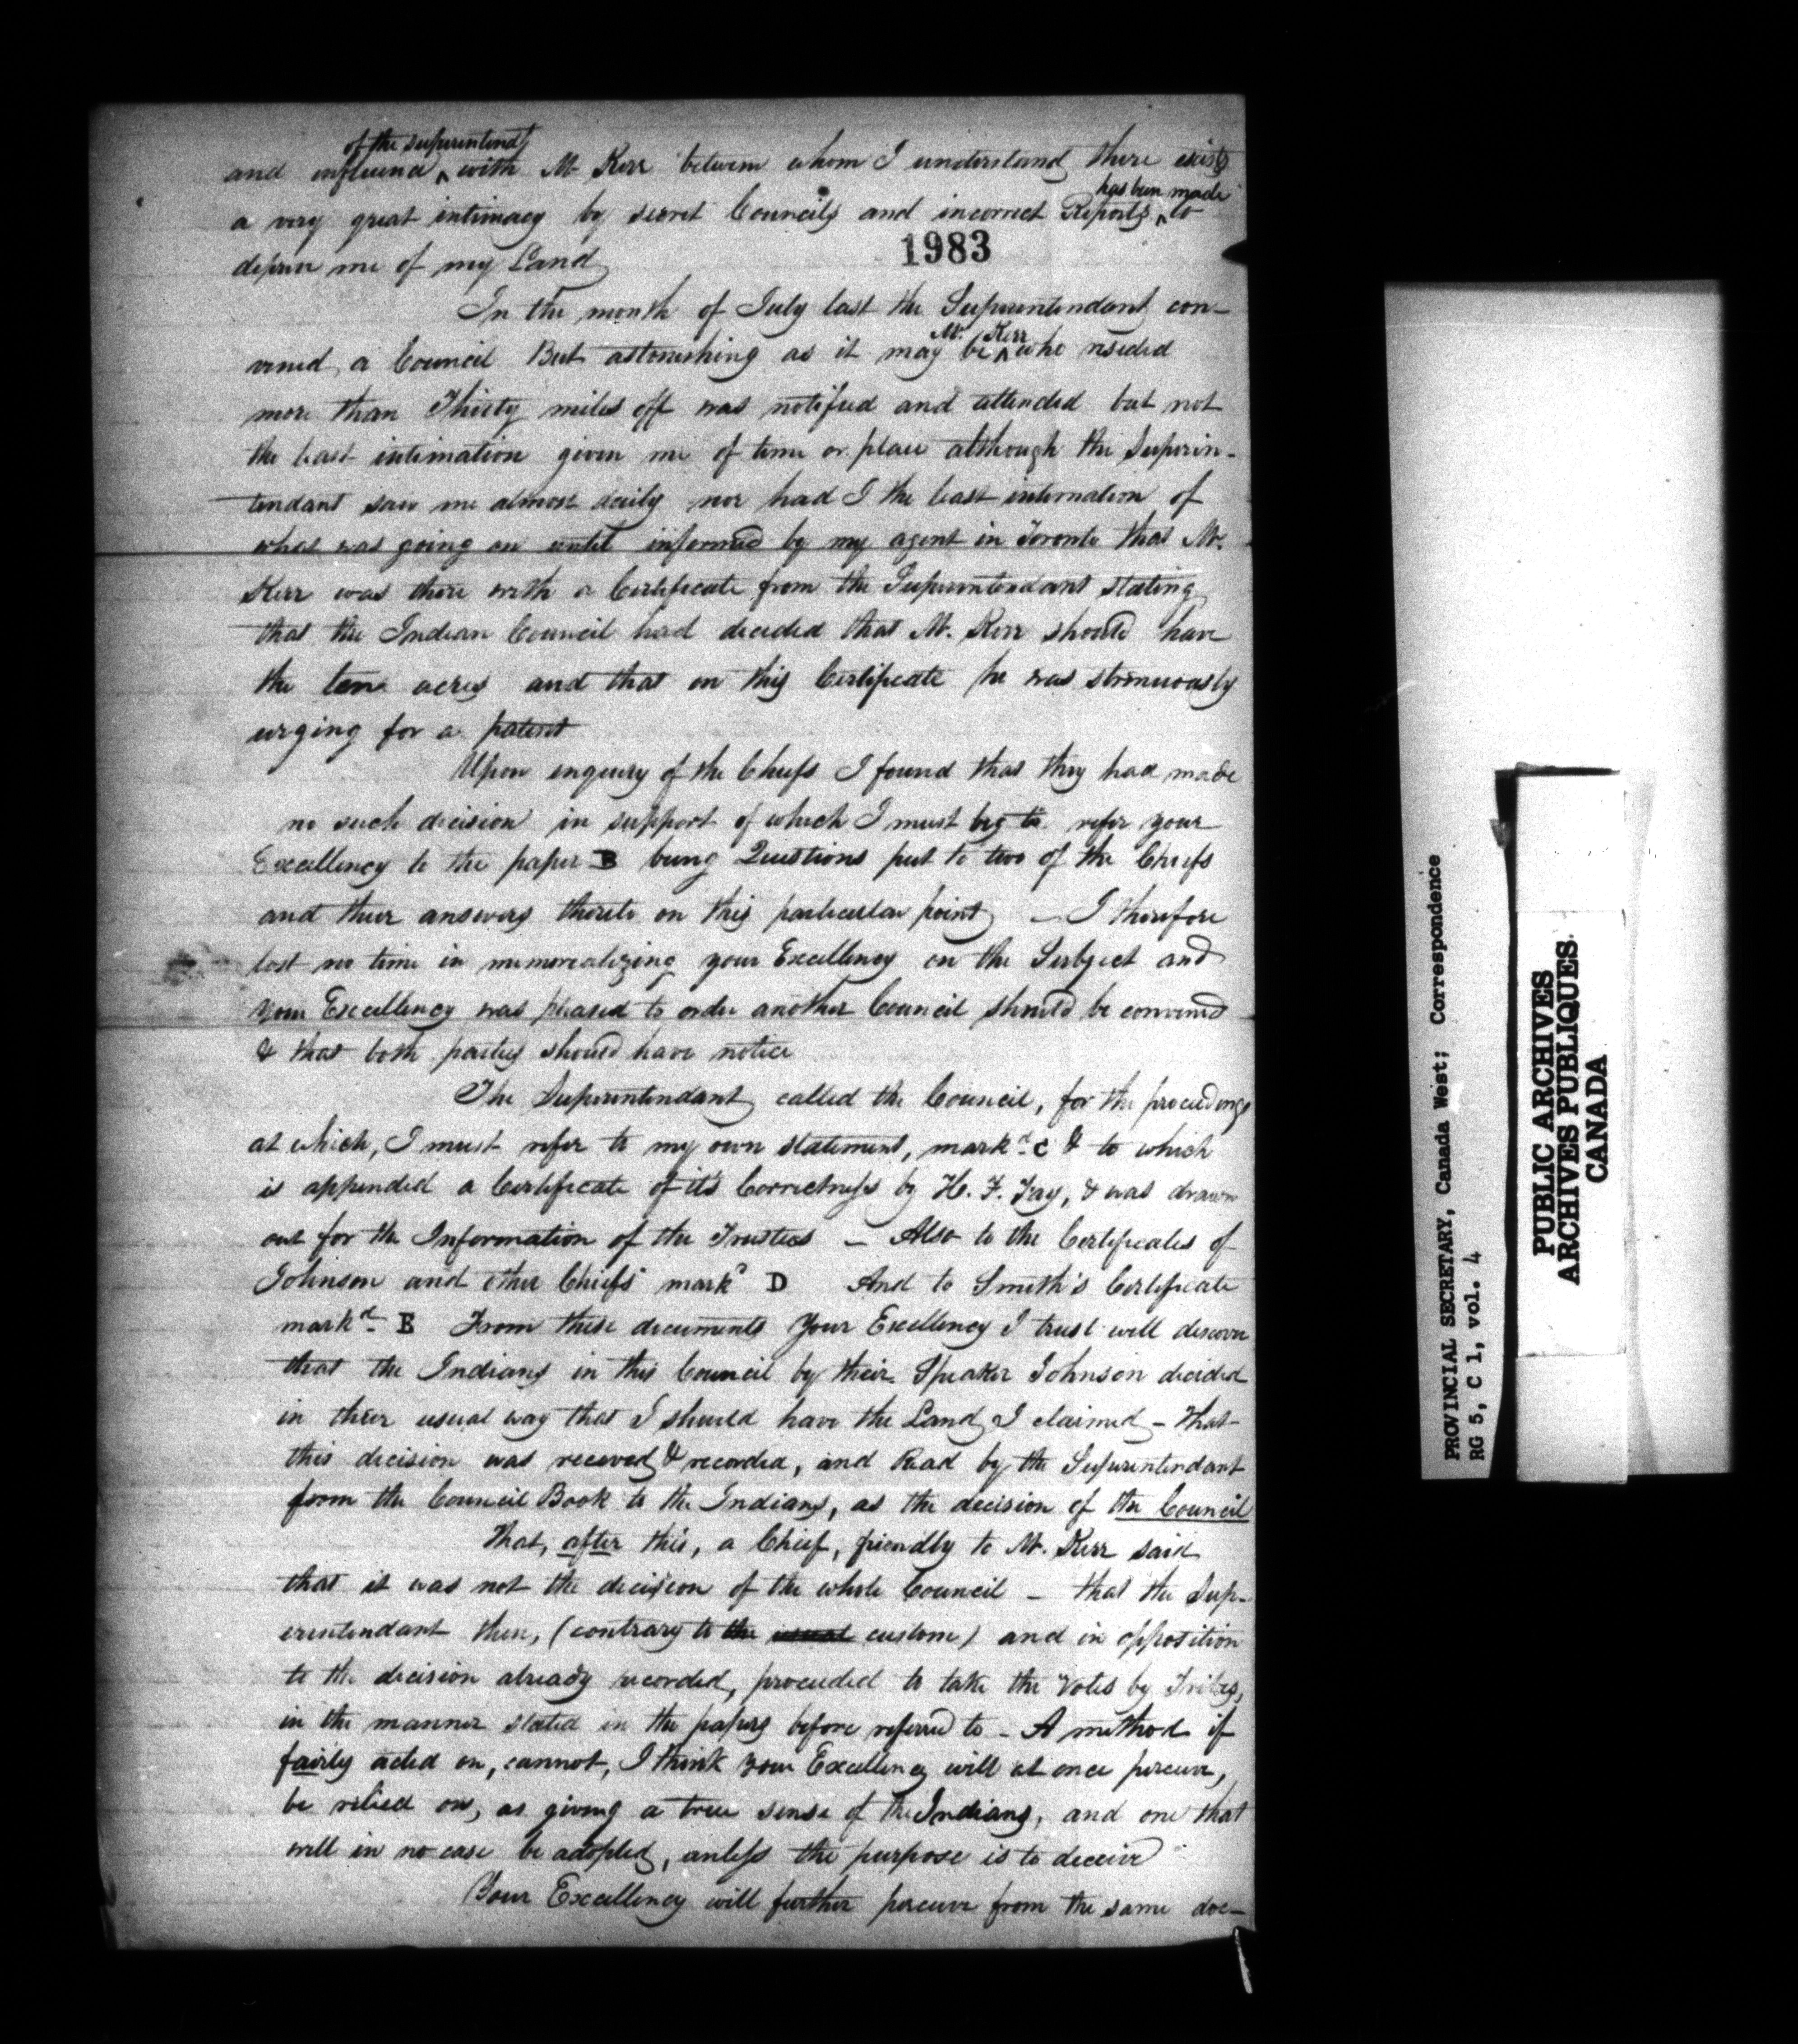 of the superintendt
and influence ^ with Mr Kerr between whom I understand there exists
has been made
a very great intimacy by secret Councils and incorrect Reports ^ to
1983
deprive me of my Land
In the month of July last the Superintendant con-
Mr. Kerr
vened, a Council But astonishing as it may be ^ who resided
more than Thirty miles off was notified and attended but not
the least intimation given me of time or place although the Superin-
tendant saw me almost daily nor had I the least intimation of
what was going on until informed by my agent in Toronto that Mr.
Kerr was there with a Certificate from the Superintendant stating
that the Indian Council had decided that Mr. Kerr should have
the ten acres and that on this Certificate he was strenuously
urging for a patent
Upon enquiry of the Chiefs I found that they had made
no such decision in support of which I must beg to refer your
Excellency to the paper B being Questions put to two of the Chiefs
and their answers thereto on this particular point – I therefore
lost no time in memorializing your Excellency on the Subject and
your Excellency was pleased to order another Council should be convened
& that both parties should have notice
The Superintendant called the Council, for the proceedings
at which, I must refer to my own statement, markd. C & to which
is appended a Certificate of it's Correctness by H. F. Fay, & was drawn
out for the Information of the Trustees – Also to the Certificates of
Johnson and other Chiefs markd D And to Smith's Certificate
markd. E From these documents Your Excellency I trust will discover
that the Indians in this Council by their Speaker Johnson decided
in their usual way that I should have the Land I claimed – That
this decision was received & recorded, and Read by the Superintendant
from the Council Book to the Indians, as the decision of the Council
That, after this, a Chief, friendly to Mr. Kerr said
that it was not the decision of the whole Council – that the Sup-
erintendant then, (contrary to the usual custom) and in opposition
to the decision already recorded, proceeded to take the votes by Tribes,
in the manner stated in the papers before referred to – A method if
fairly acted on, cannot, I think your Excellency will at once perceive,
be relied on, as giving a true sense of the Indians, and one that
will in no case be adopted, unless the purpose is to deceive
Your Excellency will further perceive from the same doc-
PROVINCIAL SECRETARY, Canada West; Correspondence
RG 5, C 1, vol. 4
PUBLIC ARCHIVES
ARCHIVES PUBLIQUES
CANADA